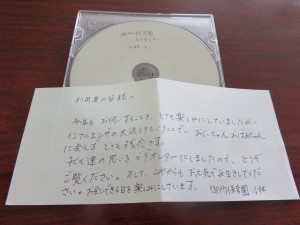 利用者の皆様へ
今年も お伺いすることを、とても楽しみにしていましたが、
インフルエンザの大流行ということで、おじいちゃん おばあちゃん
に会えず とても残念です。
子ども達の思いを ビデオレターにしましたので、どうぞ
ご覧ください。そして、これからも お元気で長生きしてくだ
さい。お会いできる日を 楽しみにしています。
保育園